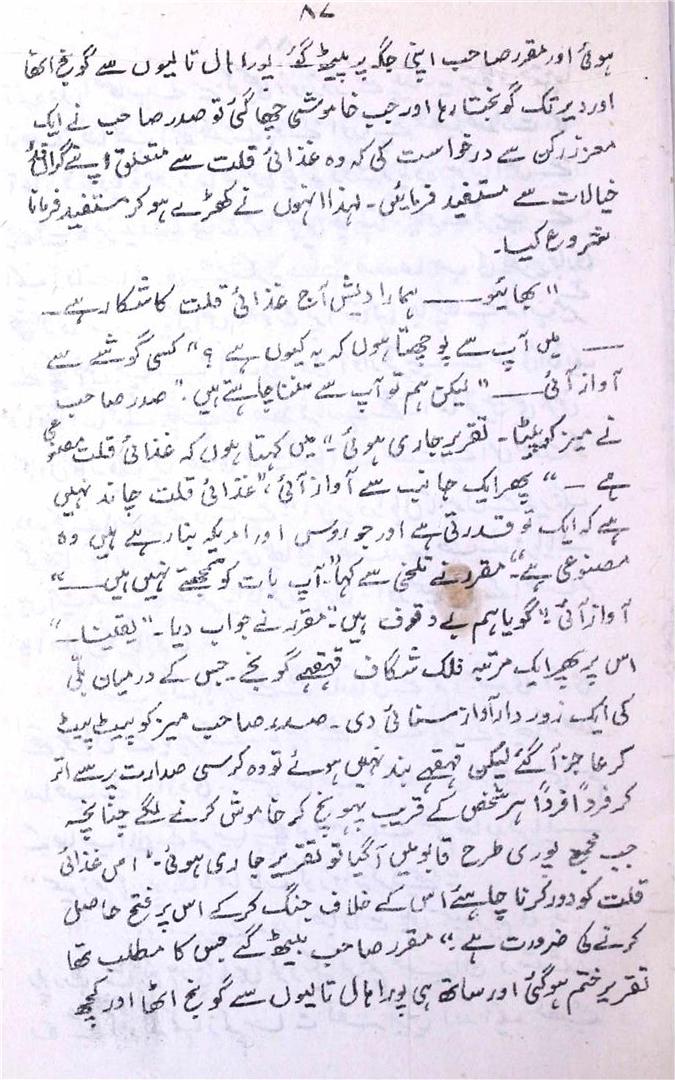 ۸۷
ہوئی اور مقرر صاحب اپنی جگہ پر بیٹھ گئے۔ پورا ہال تالیوں سے گونج اٹھا
اور دیر تک گونجتا رہا اور جب خاموشی چھا گئی تو صدر صاحب نے ایک
معزز رکن سے درخواست کی کہ وہ غذائی قلت سے متعلق اپنے گرانقدر
خیالات سے مستفید فرمائیں۔ لہذا انہوں نے کھڑے ہو کر مستفید فرمانا
شروع کیا۔
"بھائیو ــــــ ہمارا دیش آج غذائی قلت کا شکار ہے ــ
ــــ میں آپ سے پوچھتا ہوں کہ یہ کیوں ہے ؟" کسی گوشے سے
آواز آئی ــــــ "لیکن ہم تو آپ سے سننا چاہتے ہیں۔" صدر صاحب
نے میز کو پیٹا۔ تقریر جاری ہوئی۔ "میں کہتا ہوں کہ غذائی قلت مصنوعی
ہے ــ" پھر ایک جانب سے آواز آئی، "غذائی قلت چاند نہیں
ہے کہ ایک تو قدرتی ہے اور جو روس اور امریکہ بنا رہے ہیں وہ
مصنوعی ہے۔" مقرر نے تلخی سے کہا۔ "آپ بات کو سمجھتے نہیں ہیں ــــ"
آواز آئی۔ "گویا ہم بے وقوف ہیں۔" مقرر نے جواب دیا۔ "یقیناً ــ"
اس پر پھر ایک مرتبہ فلک شگاف قہقہے گونجے۔ جس کے درمیان بلّی
کی ایک زور دار آواز سنائی دی۔ صدر صاحب میز کو پیٹ پیٹ
کر عاجز آگئے لیکن قہقہے بند نہیں ہوئے تو وہ کرسی صدارت پر سے اتر
کر فرداً فرداً ہر شخص کے قریب پہونچ کر خاموش کرنے لگے چنانچہ
جب مجمع پوری طرح قابو میں آگیا تو تقریر جاری ہوئی۔ "اس غذائی
قلت کو دور کرنا چاہئے اس کے خلاف جنگ کر کے اس پر فتح حاصل
کرنے کی ضرورت ہے۔" مقرر صاحب بیٹھ گے جس کا مطلب تھا
تقریر ختم ہو گئی اور ساتھ ہی پورا ہال تالیوں سے گونج اٹھا اور کچھ